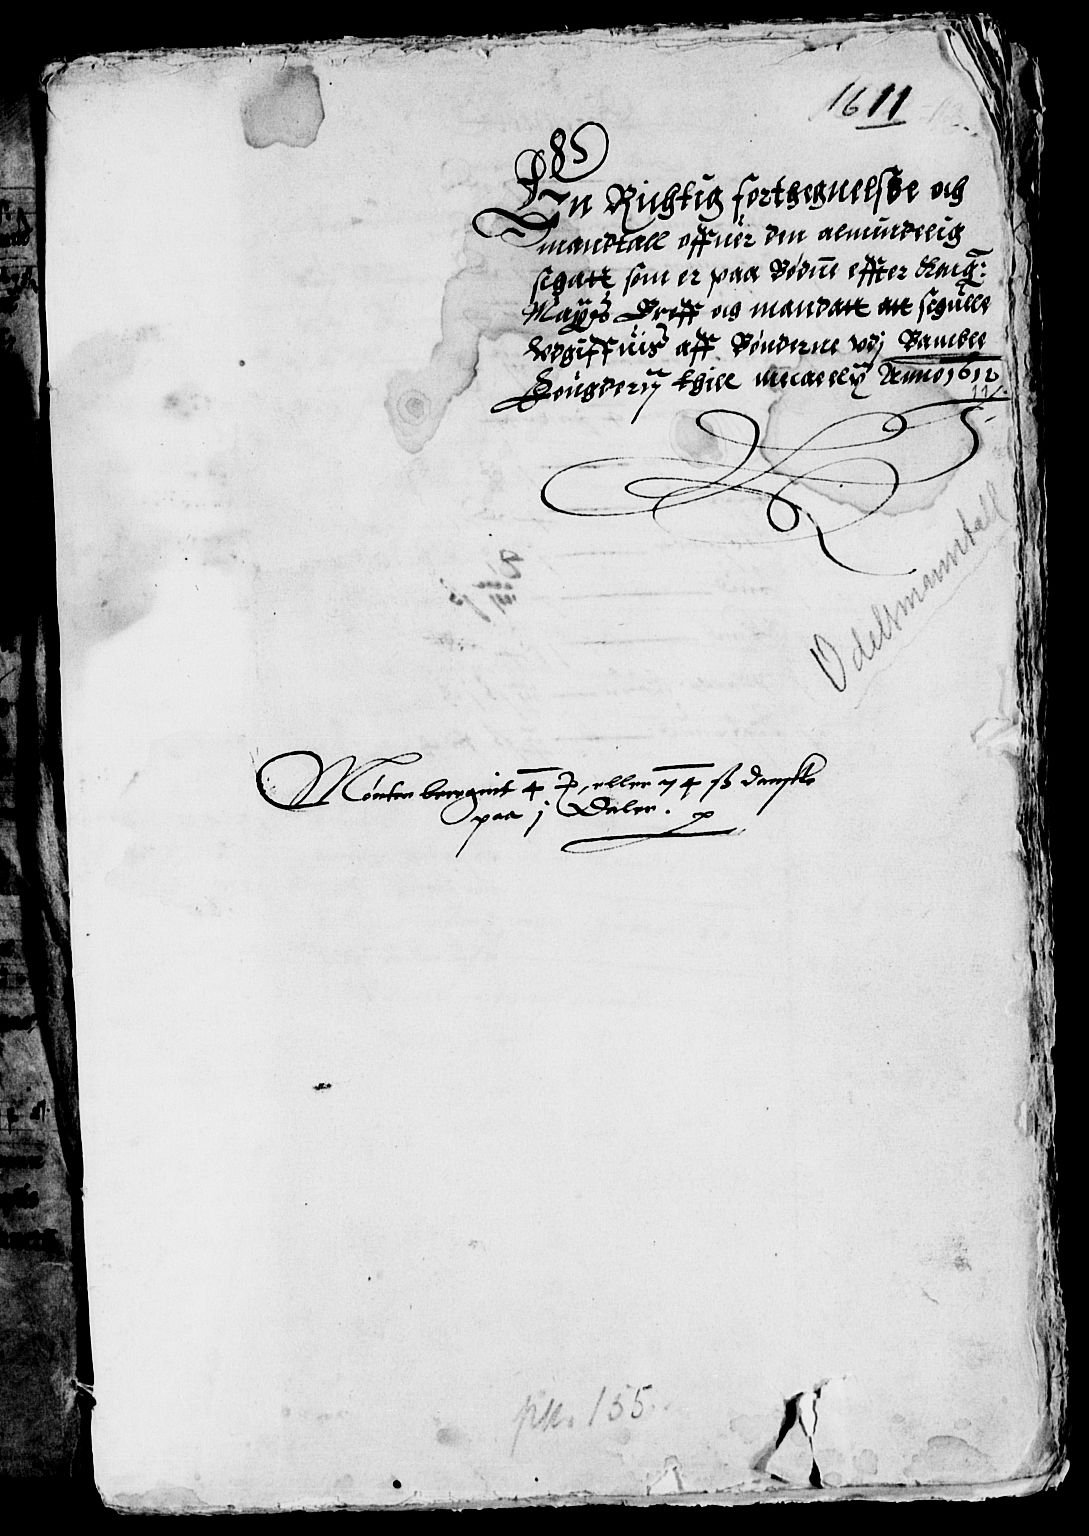 1611
En Richtig fortzegnelsse och
mandtall offuer den almindelig
schatt som er paa Bøden effter Kong:
Mayts Breff och mandatt att schulle
Vdgiffuis aff Bønderne vdj Bamble
thill Anno 1612
11
Odelsmanntall
Mønten beregnit 4 eller 74 ß danske
paa j Daler.
pk. 155